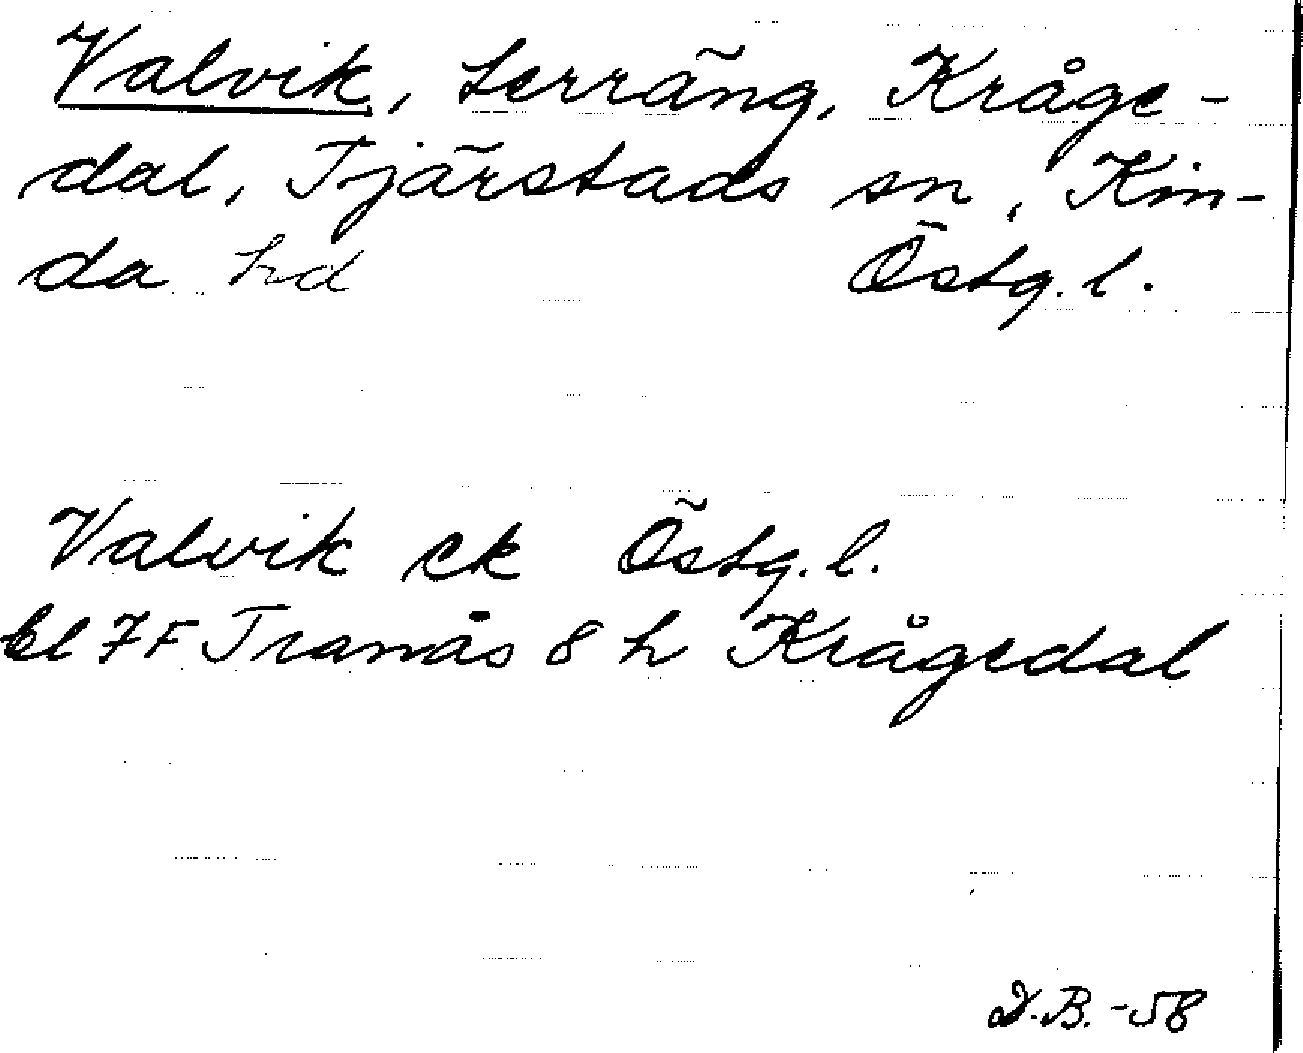 Valvik, terräng, Kråge-
dal, Tjärstads sn, Kin-
da hd Östg. l.
Valvik ek Östg. l.
bl 7F Tranås 8 h Krågedal
D.B. -58